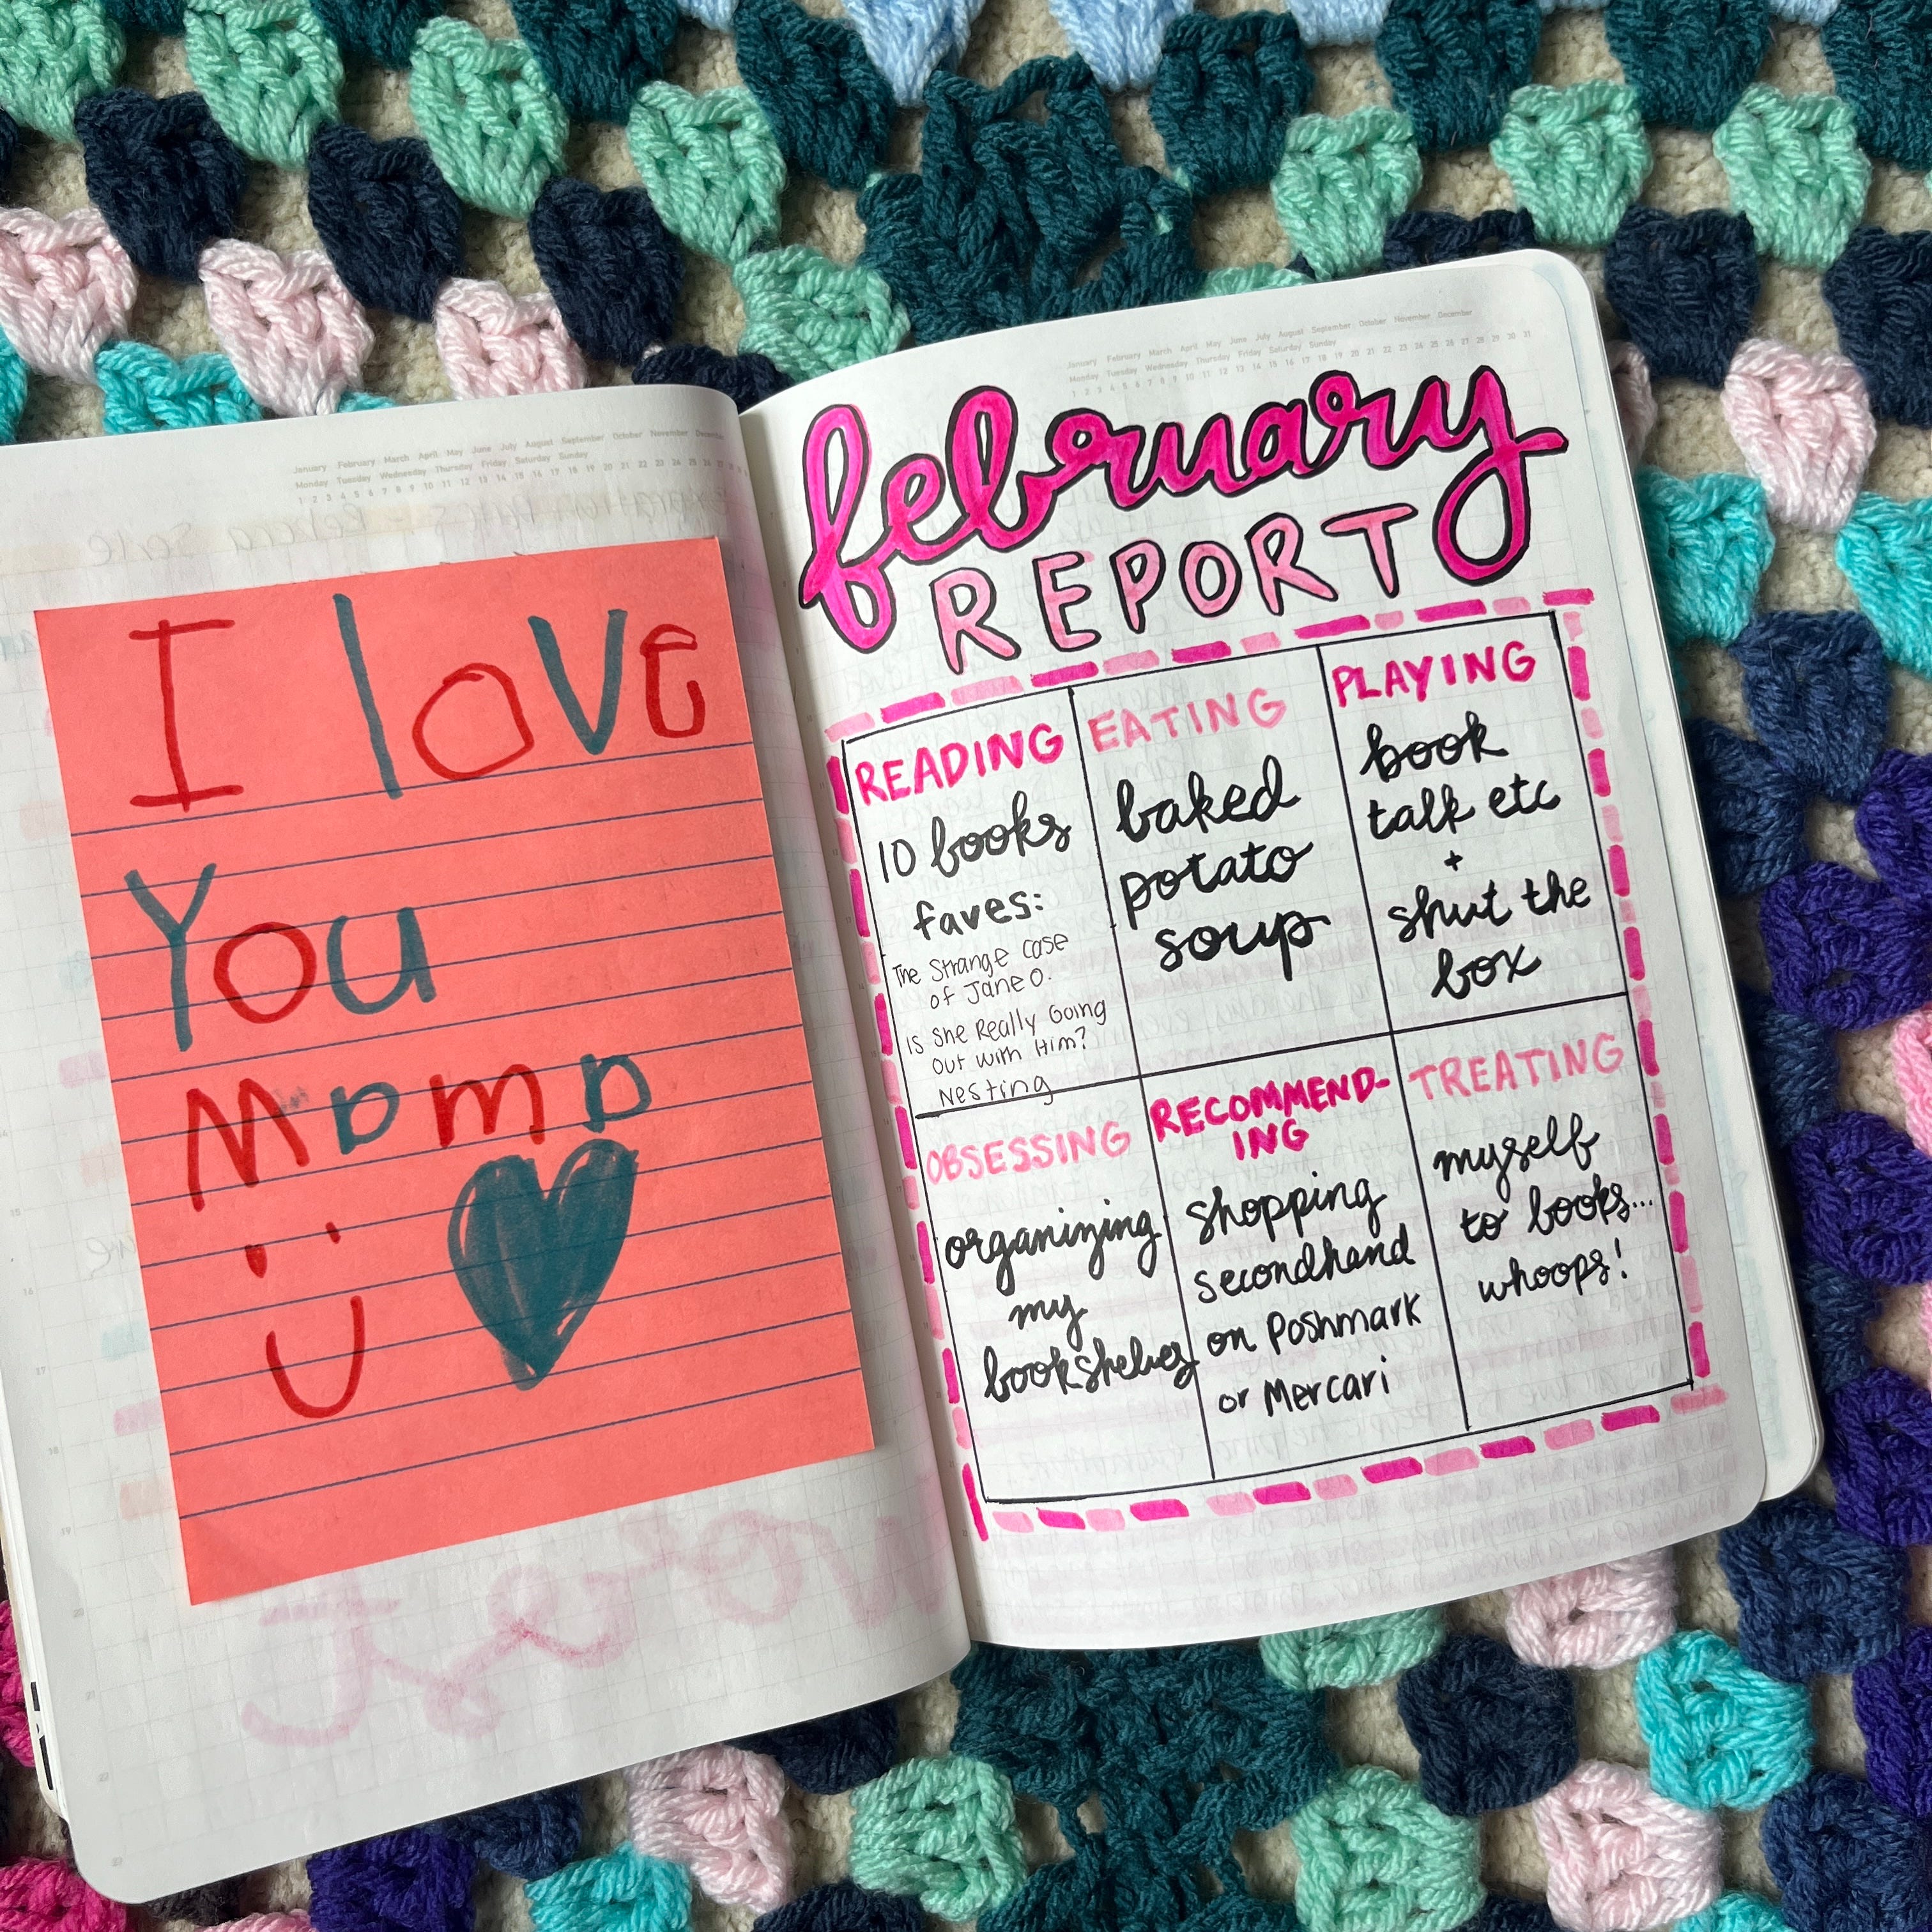 January February March April May June July August September October November December
Monday Tuesday Wednesday Thursday Friday Saturday Sunday
1 2 3 4 5 6 7 8 9 10 11 12 13 14 15 16 17 18 19 20 21 22 23 24 25 26 27
I love
You
Mama
January February March April May June July August September October November December
Monday Tuesday Wednesday Thursday Friday Saturday Sunday
1 2 3 4 5 6 7 8 9 10 11 12 13 14 15 16 17 18 19 20 21 22 23 24 25 26 27 28 29 30 31
february
REPORT
READING
10 books
faves:
The Strange case
of Jane O.
Is She Really Going
Out with Him?
Nesting
EATING
baked
potato
soup
PLAYING
book
talk etc
+
shut the
box
OBSESSING
organizing
my
bookshelves
RECOMMEND-
ING
shopping
secondhand
on Poshmark
or Mercari
TREATING
myself
to books...
whoops!